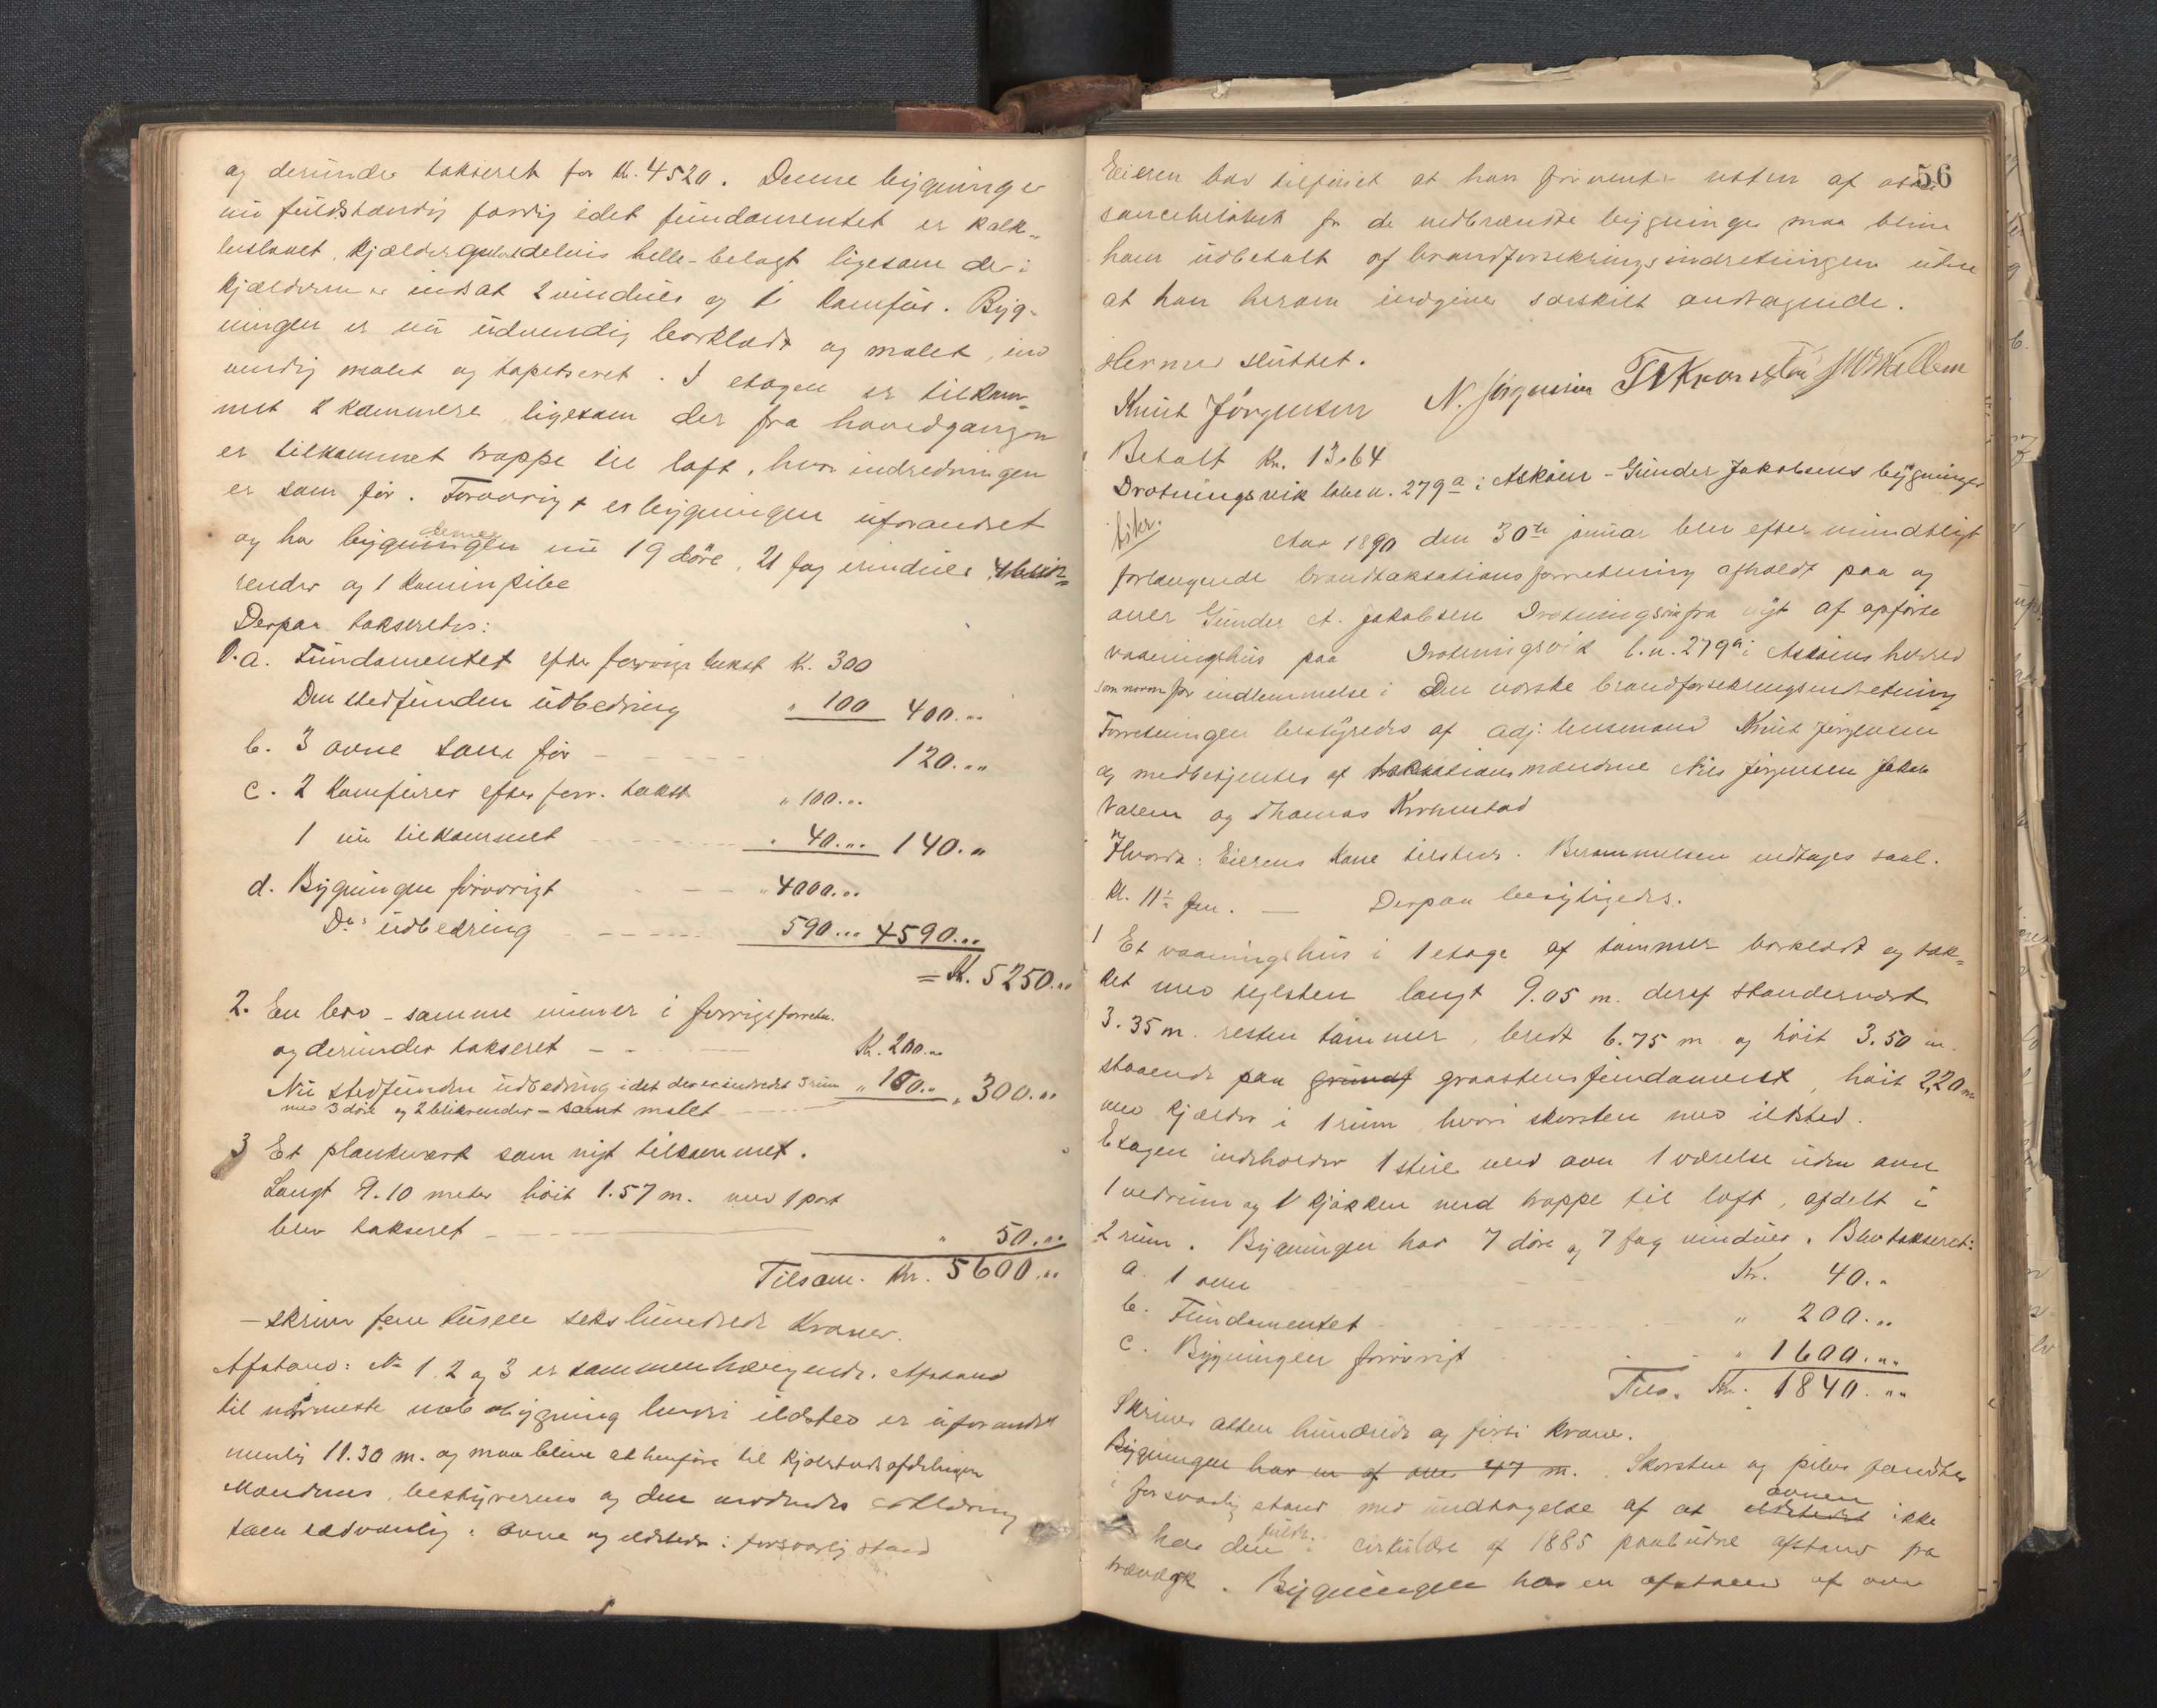 og derunder takseret for Kr. 4520. Denne bygning er
nu fuldstændig færdig idet fundamentet er kalk-
kjældergulvet delvis helle-belagt ligesom der i
kjælderen er indsat 2 vinduer og 1 komfur. Byg-
ningen er nu udvendig bordklædt og malet, ind
vendig malet og tapetseret. I etagen er tilkom-
met 2 kammere, ligesom der fra hovedgangen
er tilkommet trappe til loft, hvor indredningen
er som før. Forøvrigt er bygningen uforandret
og har bygningen denne nu 19 døre, 21 fag vinduer, 4 blik-
render og 1 kaminpibe
Derpaa takseredes:
1.a. Fundamentet efter forrige takst Kr. 300
Den stedfunden udbedring " 100 400."
b. 3 ovne som før - 120."
c. 2 Komfurer efter forr. takst " 100."
1 nu tilkommet " 40." 140."
d. Bygningen forøvrigt " 4000."
Do udbedring 590." 4590."
= Kr. 5250."
2. En bod - samme nummer i forrige forretn.
og derunder takseret - Kr. 200."
Nu stedfunden udbedring idet der er indredet 3 rum " 100." " 300."
med 3 døre og 2 blikrender - samt malet
3 Et plankeværk som nyt tilkommet.
Langt 9.10 meter høit 1.57 m. med 1 port
blev takseret - " 50."
Tilsam. Kr. 5600."
- skriver fem tusen seks hundrede Kroner.
Afstand: No 1, 2 og 3 er sammenhængende. Afstand
til nærmeste nabobygning hvori ildsted er uforandret
nemlig 11.30 m. og maa blive at henføre til Kjøbstadsafdelingen
Mændenes, bestyrerens og den anordnede erklæring
som sædvanlig. Ovne og ildsteder i forsvarlig stand
56
Eieren har tilføiet at han forventer resten af
for de nedbrændte bygninger maa blive
ham udbetalt af brandforsikringsindretningen uden
at han herom indgiver særskilt andragende.
Hermed sluttet.
Knut Jørgensen N. Jørgensen T. Kronstad J. Wallem
Betalt Kr. 13.64
Drotningsvik løbe n. 279a i Askøen - Gunder Jakobsens bygninger
Aar 1890 den 30te januar blev efter mundtligt
forlangende brandtaksationsforretning afholdt paa og
over Gunder A. Jakobsen Drotningsvik fra nyt af opførte
vaaningshus paa Drotningsvik l.n. 279a i Askøens herred
som norm for indlemmelse i Den norske brandforsikringsindretning
Forretningen bestyredes af adj. lensmand Knut Jørgensen
og medbetjentes af taksationsmændene Nils Jørgensen Jakob
Valem og Thomas Kronstad
Hvorda: Eierens Kone tilstede. Berammelsen vedtages saal.
Kl. 11½ fm. — Derpaa besigtigedes.
1 Et vaaningshus i 1 etage af tømmer bordklædt og tæk-
ket med teglsten langt 9.05 m. deraf standerværk
3.35 m. resten tømmer, bredt 6.75 m og høit 3.50 m.
staaende paa grundf graastensfundament, høit 2,20 m
med kjælder i 1 rum, hvori skorsten med ildsted.
Etagen indeholder 1 stue med ovn 1 værelse uden ovn
1 vedrum og 1 kjøkken med trappe til loft, afdelt i
2 rum. Bygningen har 7 døre og 7 fag vinduer. Blev takseret:
a 1 ovn Kr. 40."
b. Fundamentet " 200."
c. Bygningen forøvrigt " 1600."
Tils. Kr. 1840."
Skriver atten hundrede og firti krone.
Bygningen har en af over 47 m. Skorsten og piber fandtes
i forsvarlig stand med undtagelse af at ildstedet ovnen ikke
har den fulde i cirkulære af 1885 paabudne afstand fra
trævæg. Bygningen har en afstand af over